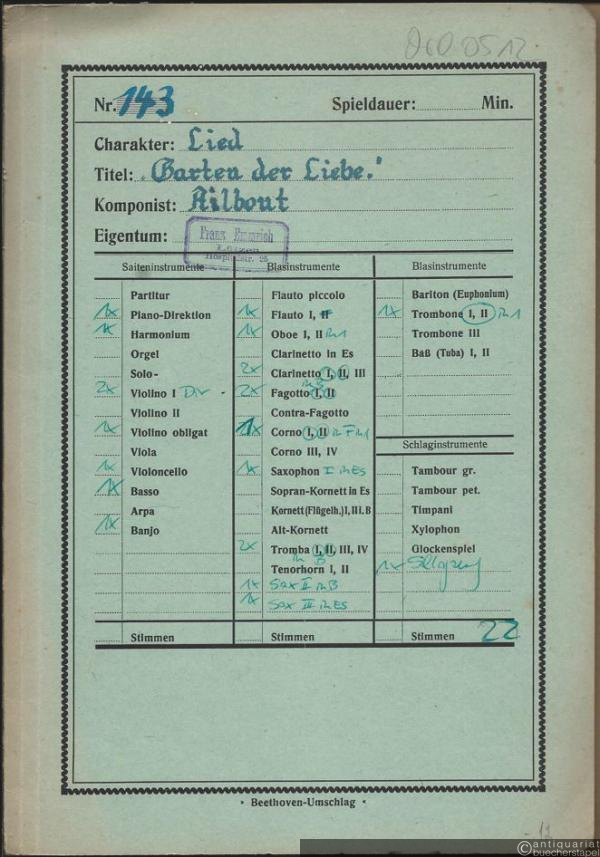 Nr. 143 Spieldauer: Min.
Charakter: Lied
Titel: „Garten der Liebe.“
Komponist: Ailbout
Eigentum:
Franz
Saiteninstrumente
Partitur
1x Piano-Direktion
1x Harmonium
Orgel
Solo-
2x Violino I Div -
Violino II
1x Violino obligat
Viola
1x Violoncello
1x Basso
Arpa
1x Banjo
Stimmen
Blasinstrumente
Flauto piccolo
1x Flauto I, II
1x Oboe I, II in 1
Clarinetto in Es
2x Clarinetto I, II, III
in B
2x Fagotto I, II
Contra-Fagotto
1x Corno I, II in F in 1
Corno III, IV
1x Saxophon I in Es
Sopran-Kornett in Es
Kornett (Flügelh.) I, II i. B
Alt-Kornett
2x Tromba I, II, III, IV
in B
Tenorhorn I, II
1x Sax II in B
1x Sax III in Es
Stimmen
Blasinstrumente
Bariton (Euphonium)
1x Trombone I, II in 1
Trombone III
Baß (Tuba) I, II
Schlaginstrumente
Tambour gr.
Tambour pet.
Timpani
Xylophon
Glockenspiel
1x
Stimmen 22
• Beethoven-Umschlag •
©antiquariat
buecherstapel